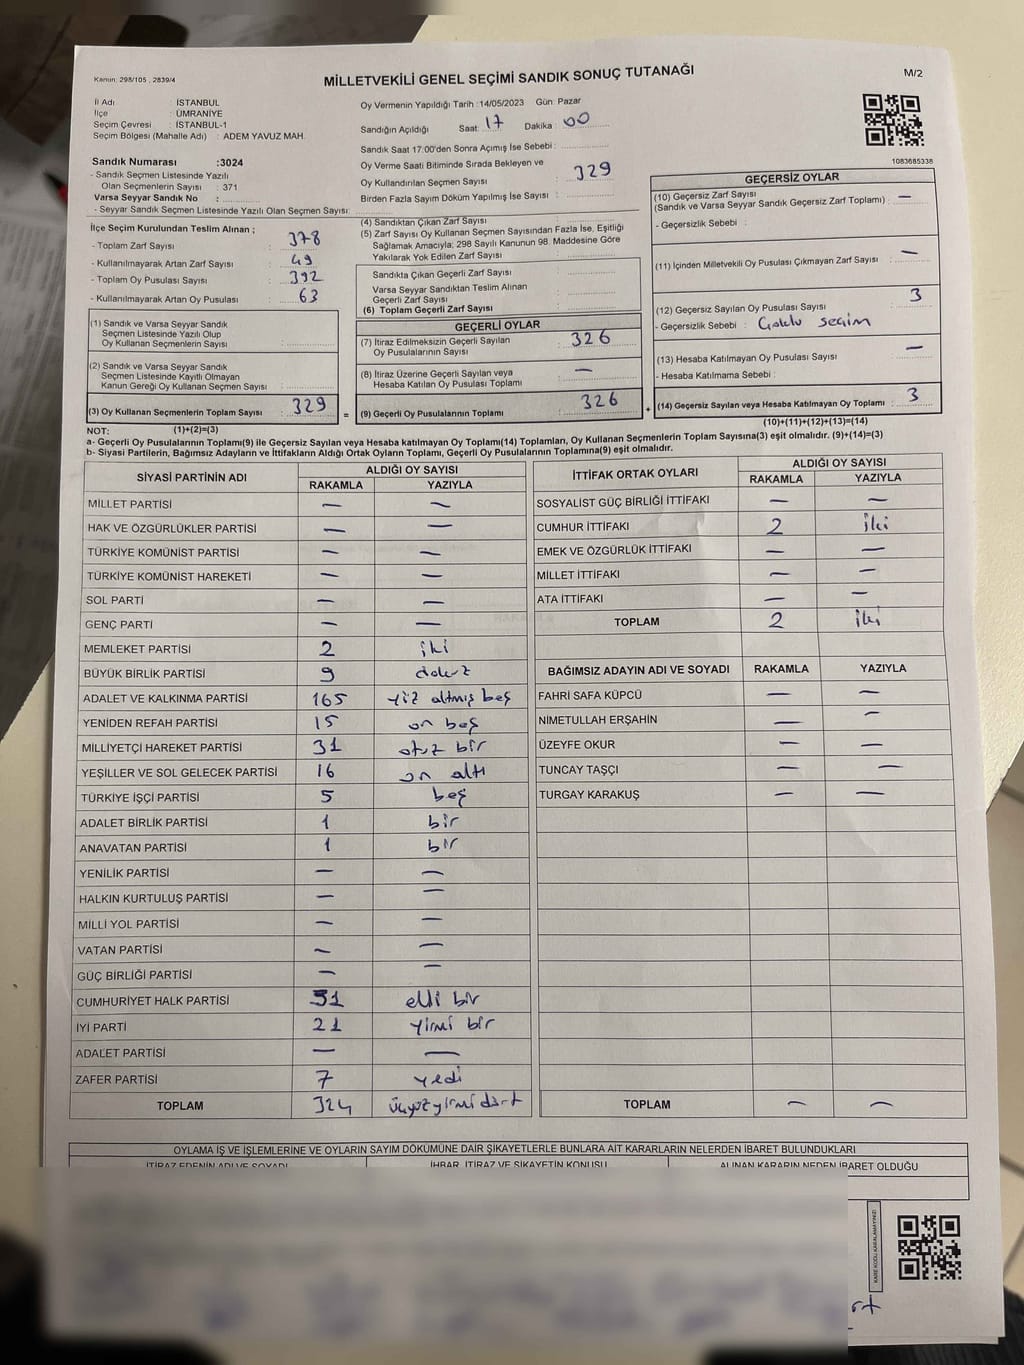 Kanun: 298/105 , 2839/4
MİLLETVEKİLİ GENEL SEÇİMİ SANDIK SONUÇ TUTANAĞI
M/2
İl Adı : İSTANBUL
İlçe : ÜMRANİYE
Seçim Çevresi : İSTANBUL-1
Seçim Bölgesi (Mahalle Adı) : ADEM YAVUZ MAH.
Sandık Numarası :3024
- Sandık Seçmen Listesinde Yazılı
Olan Seçmenlerin Sayısı : 371
Varsa Seyyar Sandık No :
- Seyyar Sandık Seçmen Listesinde Yazılı Olan Seçmen Sayısı:
Oy Vermenin Yapıldığı Tarih :14/05/2023 Gün: Pazar
Sandığın Açıldığı Saat: 17 Dakika : 00
Sandık Saat 17:00'den Sonra Açımış İse Sebebi :
Oy Verme Saati Bitiminde Sırada Bekleyen ve
Oy Kullandırılan Seçmen Sayısı : 329
Birden Fazla Sayım Döküm Yapılmış İse Sayısı :
1083685338
İlçe Seçim Kurulundan Teslim Alınan ;
- Toplam Zarf Sayısı : 378
- Kullanılmayarak Artan Zarf Sayısı : 49
- Toplam Oy Pusulası Sayısı : 392
- Kullanılmayarak Artan Oy Pusulası : 63
(1) Sandık ve Varsa Seyyar Sandık
Seçmen Listesinde Yazılı Olup
Oy Kullanan Seçmenlerin Sayısı :
(2) Sandık ve Varsa Seyyar Sandık
Seçmen Listesinde Kayıtlı Olmayan
Kanun Gereği Oy Kullanan Seçmen Sayısı :
(3) Oy Kullanan Seçmenlerin Toplam Sayısı : 329 =
(4) Sandıktan Çıkan Zarf Sayısı :
(5) Zarf Sayısı Oy Kullanan Seçmen Sayısından Fazla İse, Eşitliği
Sağlamak Amacıyla; 298 Sayılı Kanunun 98. Maddesine Göre
Yakılarak Yok Edilen Zarf Sayısı :
Sandıkta Çıkan Geçerli Zarf Sayısı :
Varsa Seyyar Sandıktan Teslim Alınan
Geçerli Zarf Sayısı :
(6) Toplam Geçerli Zarf Sayısı :
GEÇERLİ OYLAR
(7) İtiraz Edilmeksizin Geçerli Sayılan
Oy Pusulalarının Sayısı : 326
(8) İtiraz Üzerine Geçerli Sayılan veya
Hesaba Katılan Oy Pusulası Toplamı : —
(9) Geçerli Oy Pusulalarının Toplamı : 326 +
GEÇERSİZ OYLAR
(10) Geçersiz Zarf Sayısı
(Sandık ve Varsa Seyyar Sandık Geçersiz Zarf Toplamı) : —
- Geçersizlik Sebebi :
(11) İçinden Milletvekili Oy Pusulası Çıkmayan Zarf Sayısı : —
(12) Geçersiz Sayılan Oy Pusulası Sayısı : 3
- Geçersizlik Sebebi : Çoklu seçim
(13) Hesaba Katılmayan Oy Pusulası Sayısı : —
- Hesaba Katılmama Sebebi :
(14) Geçersiz Sayılan veya Hesaba Katılmayan Oy Toplamı : 3
NOT: (1)+(2)=(3)
(10)+(11)+(12)+(13)=(14)
a- Geçerli Oy Pusulalarının Toplamı(9) ile Geçersiz Sayılan veya Hesaba katılmayan Oy Toplamı(14) Toplamları, Oy Kullanan Seçmenlerin Toplam Sayısına(3) eşit olmalıdır. (9)+(14)=(3)
b- Siyasi Partilerin, Bağımsız Adayların ve İttifakların Aldığı Ortak Oyların Toplamı, Geçerli Oy Pusulalarının Toplamına(9) eşit olmalıdır.
SİYASİ PARTİNİN ADI ALDIĞI OY SAYISI
RAKAMLA YAZIYLA
MİLLET PARTİSİ — —
HAK VE ÖZGÜRLÜKLER PARTİSİ — —
TÜRKİYE KOMÜNİST PARTİSİ — —
TÜRKİYE KOMÜNİST HAREKETİ — —
SOL PARTİ — —
GENÇ PARTİ — —
MEMLEKET PARTİSİ 2 iki
BÜYÜK BİRLİK PARTİSİ 9 dokuz
ADALET VE KALKINMA PARTİSİ 165 yüz altmış beş
YENİDEN REFAH PARTİSİ 15 on beş
MİLLİYETÇİ HAREKET PARTİSİ 31 otuz bir
YEŞİLLER VE SOL GELECEK PARTİSİ 16 on altı
TÜRKİYE İŞÇİ PARTİSİ 5 beş
ADALET BİRLİK PARTİSİ 1 bir
ANAVATAN PARTİSİ 1 bir
YENİLİK PARTİSİ — —
HALKIN KURTULUŞ PARTİSİ — —
MİLLİ YOL PARTİSİ — —
VATAN PARTİSİ — —
GÜÇ BİRLİĞİ PARTİSİ — —
CUMHURİYET HALK PARTİSİ 51 elli bir
İYİ PARTİ 21 yirmi bir
ADALET PARTİSİ — —
ZAFER PARTİSİ 7 yedi
TOPLAM 324 üçyüzyirmidört
İTTİFAK ORTAK OYLARI ALDIĞI OY SAYISI
RAKAMLA YAZIYLA
SOSYALİST GÜÇ BİRLİĞİ İTTİFAKI — —
CUMHUR İTTİFAKI 2 iki
EMEK VE ÖZGÜRLÜK İTTİFAKI — —
MİLLET İTTİFAKI — —
ATA İTTİFAKI — —
TOPLAM 2 iki
BAĞIMSIZ ADAYIN ADI VE SOYADI RAKAMLA YAZIYLA
FAHRİ SAFA KÜPCÜ — —
NİMETULLAH ERŞAHİN — —
ÜZEYFE OKUR — —
TUNCAY TAŞÇI — —
TURGAY KARAKUŞ — —
TOPLAM — —
OYLAMA İŞ VE İŞLEMLERİNE VE OYLARIN SAYIM DÖKÜMÜNE DAİR ŞİKAYETLERLE BUNLARA AİT KARARLARIN NELERDEN İBARET BULUNDUKLARI
İTİRAZ EDENİN ADI VE SOYADI İHBAR, İTİRAZ VE ŞİKAYETİN KONUSU ALINAN KARARIN NEDEN İBARET OLDUĞU
KARE KODU KARALAMAYINIZ!